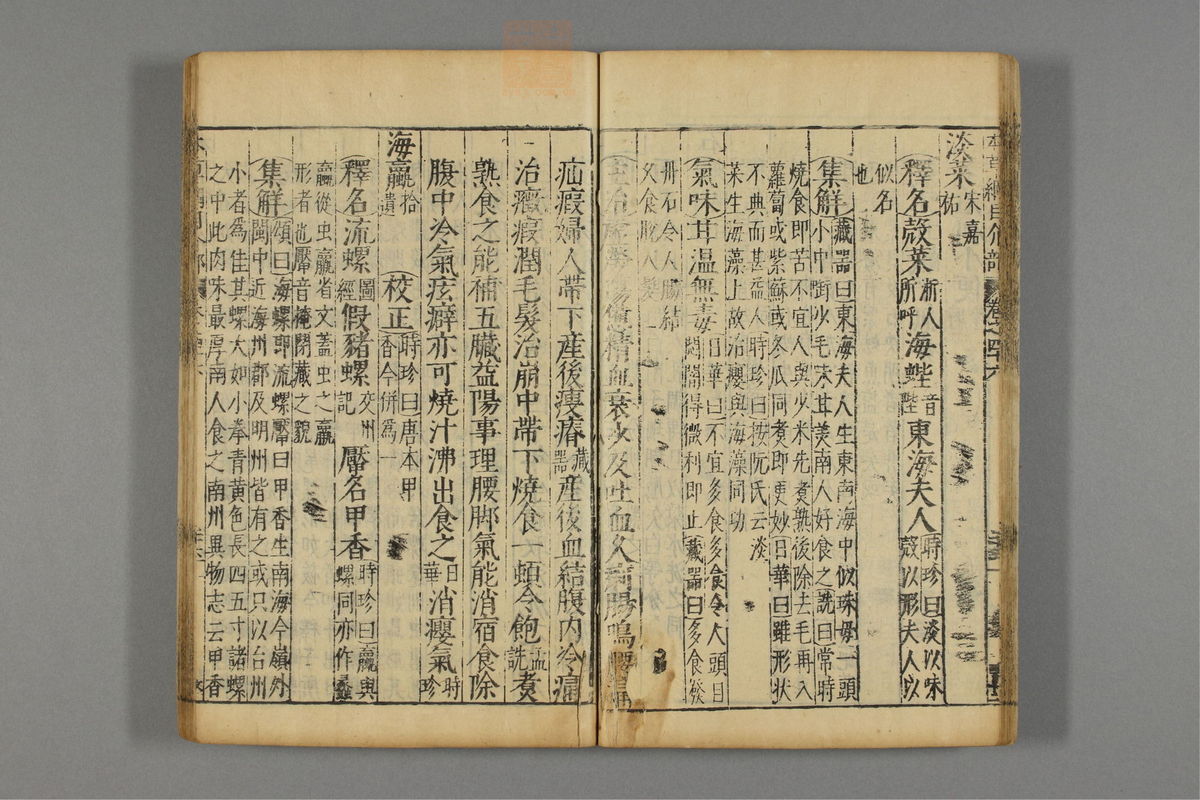 本草綱目介部 卷之四十六
淡菜 宋嘉祐
釋名 殼菜 浙人所呼 海蜌 音陛 東海夫人 時珍曰淡以味殼以形夫人以
似名也
集解 藏器曰東海夫人生東南海中似珠母一頭
小中銜少毛味甘美南人好食之詵曰常時
燒食即苦不宜人與少米先煮熟後除去毛再入
蘿蔔或紫蘇或冬瓜同煮即更妙日華曰雖形狀
不典而甚益人時珍曰按阮氏云淡
菜生海藻上故治癭與海藻同功
氣味甘溫無毒 日華曰不宜多食多食令人頭目
悶闇得微利即止藏器曰多食發
丹石令人腸結
久食脫人髮
主治 傷精血衰少及吐血久痢腸鳴腰
疝瘕婦人帶下產後瘦瘠 藏器 產後血結腹內冷痛
治癥瘕潤毛髮治崩中帶下燒食一頓令飽 孟詵 煮
熟食之能補五臟益陽事理腰脚氣能消宿食除
腹中冷氣痃癖亦可燒汁沸出食之 日華 消癭氣 時珍
海蠃 拾遺 校正 時珍曰唐本甲香今併為一
釋名 流螺 圖經 假豬螺 交州記 厴名甲香 時珍曰蠃與螺同亦作蠡
蠃從虫蠃省文蓋虫之蠃
形者也厴音掩閉藏之貌
集解 頌曰海螺即流螺厴曰甲香生南海今嶺外
閩中近海州郡及明州皆有之或只以台州
小者為佳其螺大如小拳青黃色長四五寸諸螺
之中此肉味最厚南人食之南州異物志云甲香